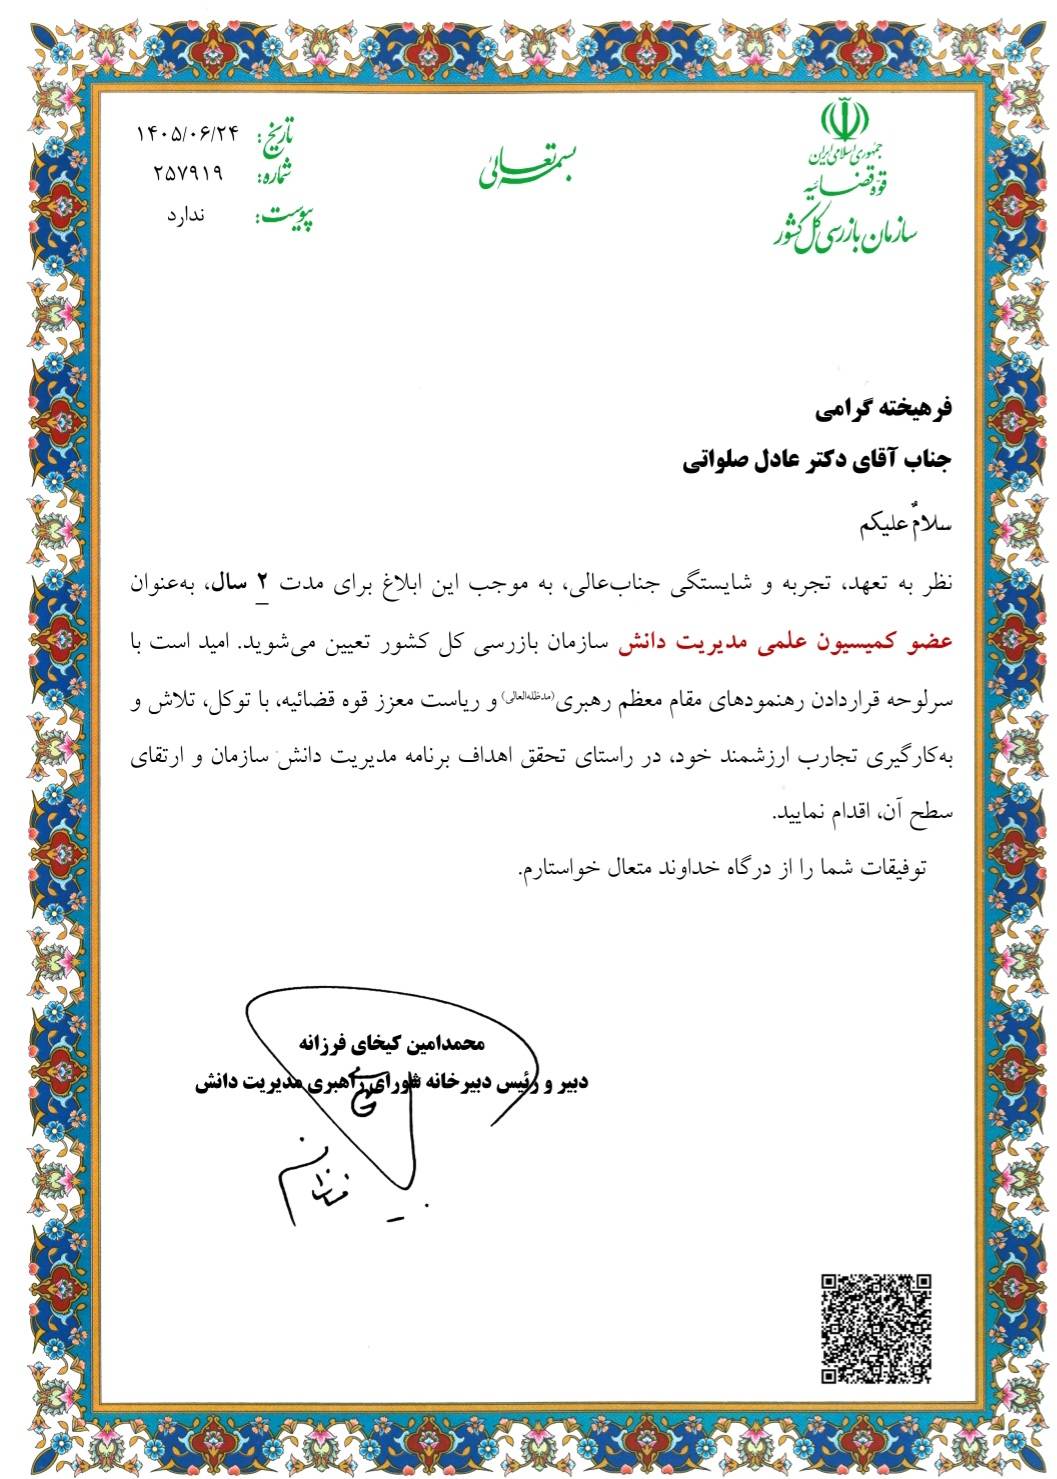 جمهوری اسلامی ایران
قوّه قضائیه
سازمان بازرسی کل کشور
بسمه تعالی
تاریخ: ۱۴۰۵/۰۶/۲۴
شماره: ۲۵۷۹۱۹
پیوست: ندارد
فرهیخته گرامی
جناب آقای دکتر عادل صلواتی
سلامٌ علیکم
نظر به تعهد، تجربه و شایستگی جناب‌عالی، به موجب این ابلاغ برای مدت ۲ سال، به‌عنوان
عضو کمیسیون علمی مدیریت دانش سازمان بازرسی کل کشور تعیین می‌شوید. امید است با
سرلوحه قراردادن رهنمودهای مقام معظم رهبری(مدظله‌العالی) و ریاست معزز قوه قضائیه، با توکل، تلاش و
به‌کارگیری تجارب ارزشمند خود، در راستای تحقق اهداف برنامه مدیریت دانش سازمان و ارتقای
سطح آن، اقدام نمایید.
توفیقات شما را از درگاه خداوند متعال خواستارم.
محمدامین کیخای فرزانه
دبیر و رئیس دبیرخانه شورای راهبری مدیریت دانش